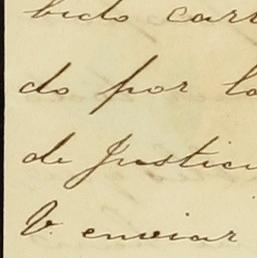 bido carr
do por la
de Justici
V. enviar